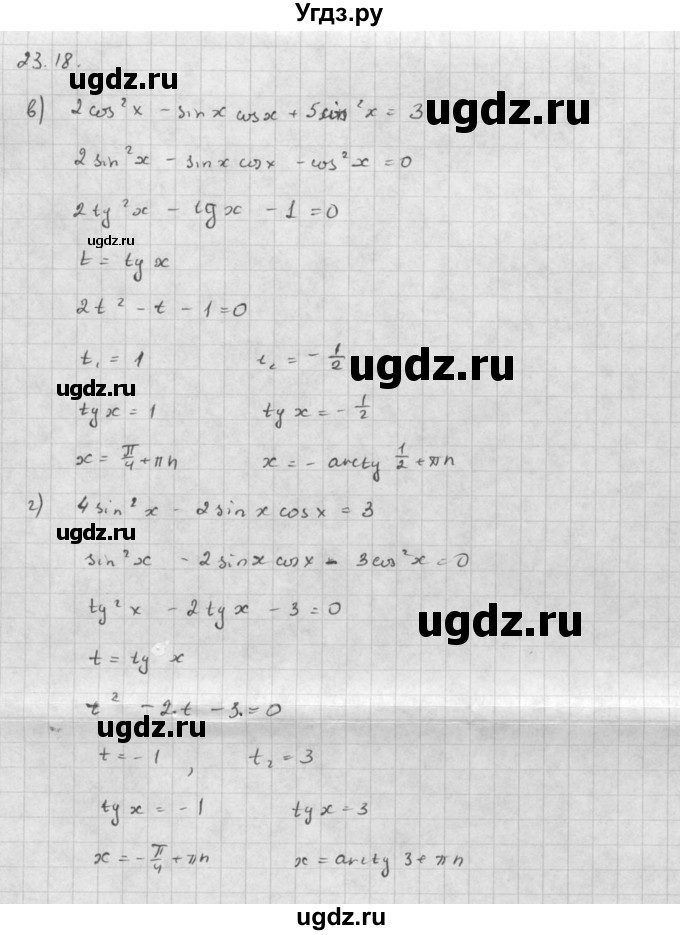 Угдз.ру
23.18.
в) 2cos²x - sin x cosx + 5sin²x = 3
ugdz.ru
ugdz.ru
2sin²x - sinx cosx - cos²x = 0
2tg²x - tgx - 1 = 0
ugdz.ru
t = tg x
2t² - t - 1 = 0
t₁ = 1 t₂ = - 1/2
ugdz.ru
ugdz.ru
tg x = 1 tg x = - 1/2
x = π/4 + πn x = - arctg 1/2 + πn
г) 4sin²x - 2sin x cos x = 3
ugdz.ru
sin²x - 2sinx cosx - 3cos²x = 0
tg²x - 2tgx - 3 = 0
ugdz.ru
t = tg x
t² - 2.t - 3. = 0
ugdz.ru
t = - 1 , t₂ = 3
tg x = - 1 tg x = 3
x = - π/4 + πn x = arctg 3 + πn
ugdz.ru